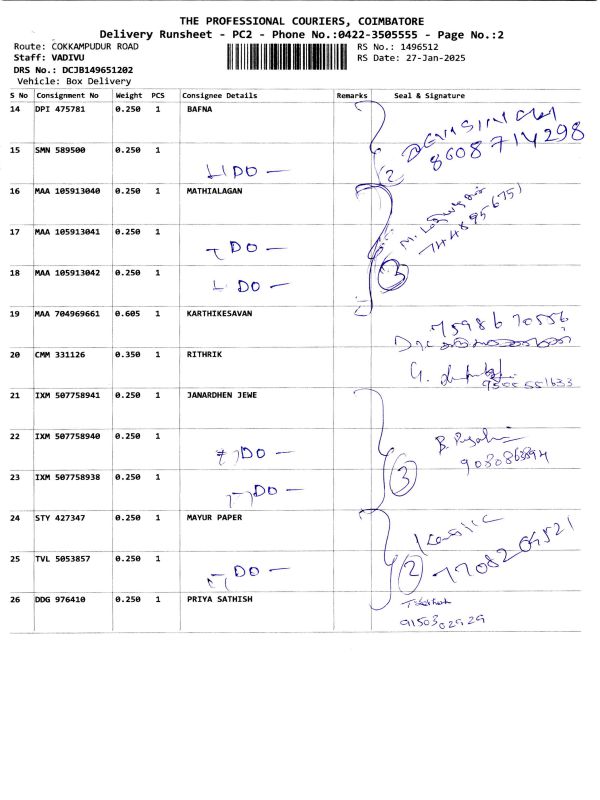 THE PROFESSIONAL COURIERS, COIMBATORE
Delivery Runsheet - PC2 - Phone No.:0422-3505555 - Page No.:2
Route: COKKAMPUDUR ROAD
RS No.: 1496512
Staff: VADIVU
RS Date: 27-Jan-2025
DRS No.: DCJB149651202
Vehicle: Box Delivery
S No Consignment No Weight PCS Consignee Details Remarks Seal & Signature
14 DPI 475781 0.250 1 BAFNA
8608714298
15 SMN 589500 0.250 1
DO — 2
16 MAA 105913040 0.250 1 MATHIALAGAN
17 MAA 105913041 0.250 1
DO —
18 MAA 105913042 0.250 1
DO — 3
19 MAA 704969661 0.605 1 KARTHIKESAVAN
7598670556
20 CMM 331126 0.350 1 RITHRIK
21 IXM 507758941 0.250 1 JANARDHEN JEWE
22 IXM 507758940 0.250 1
DO —
23 IXM 507758938 0.250 1
DO — 3
24 STY 427347 0.250 1 MAYUR PAPER
25 TVL 5053857 0.250 1
DO — 2
26 DDG 976410 0.250 1 PRIYA SATHISH
9150302929